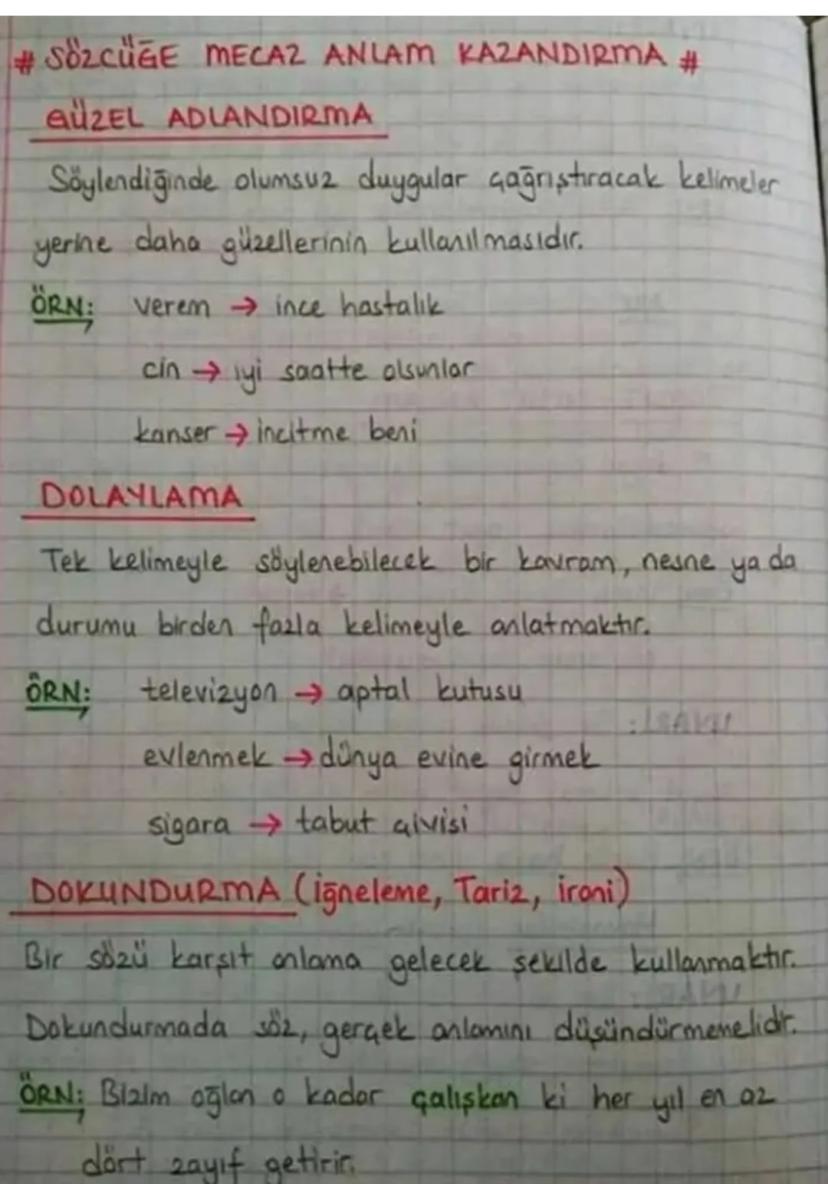 # SÖZCÜĞE MECAZ ANLAM KAZANDIRMA #
GÜZEL ADLANDIRMA
Söylendiğinde olumsuz duygular çağrıştıracak kelimeler
yerine daha güzellerinin kullanılmasıdır.
ÖRN: verem → ince hastalık
cin → iyi saatte olsunlar
kanser → incitme beni
DOLAYLAMA
Tek kelimeyle söylenebilecek bir kavram, nesne ya da
durumu birden fazla kelimeyle anlatmaktır.
ÖRN: televizyon → aptal kutusu
evlenmek → dünya evine girmek
sigara → tabut çivisi
DOKUNDURMA (iğneleme, Tariz, ironi)
Bir sözü karşıt anlama gelecek şekilde kullanmaktır.
Dokundurmada söz, gerçek anlamını düşündürmemelidir.
ÖRN: Bizim oğlan o kadar çalışkan ki her yıl en az
dört zayıf getirir.